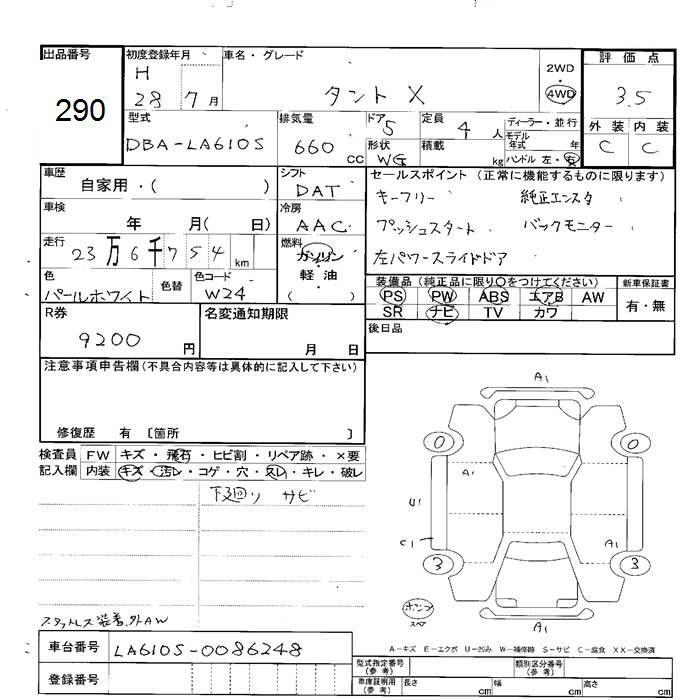 出品番号 初度登録年月 車名・グレード 評価点
290
H 28 7月 タント X 2WD・4WD 3.5
型式 排気量 ドア 定員 ディーラー・並行 外装 内装
DBA-LA610S 660 CC 5 4 人 モデル年式 年 C C
形状 WG 積載 kg ハンドル 左・右
車歴 シフト セールスポイント (正常に機能するものに限ります)
自家用・( ) DAT キーフリー 純正エンスタ
車検 冷房
年 月( 日) AAC プッシュスタート バックモニター
走行 燃料
23万6千754km ガソリン 左パワースライドドア
軽油
( )
色 色替 色コード 装備品 (純正品に限り○をつけてください) 新車保証書
パールホワイト W24 PS PW ABS エアB AW 有・無
SR ナビ TV カワ
R券 名変通知期限 後日品
9200円 月 日
注意事項申告欄(不具合内容等は具体的に記入して下さい)
修復歴 有 〔箇所 〕
検査員 FW キズ・飛石・ヒビ割・リペア跡・×要
記入欄 内装 キズ・汚レ・コゲ・穴・スレ・キレ・破レ
下廻り サビ
A1
0 0
A1
U1
C1 A1
3 3
A1
スタットレス装着.外AW
A-キズ E-エクボ U-凹み W-補修跡 S-サビ C-腐食 XX-交換済
車台番号 LA610S-0086248
登録番号
型式指定番号(参考) 類別区分番号(参考)
車庫証明用(参考) 長さ cm 幅 cm 高さ cm